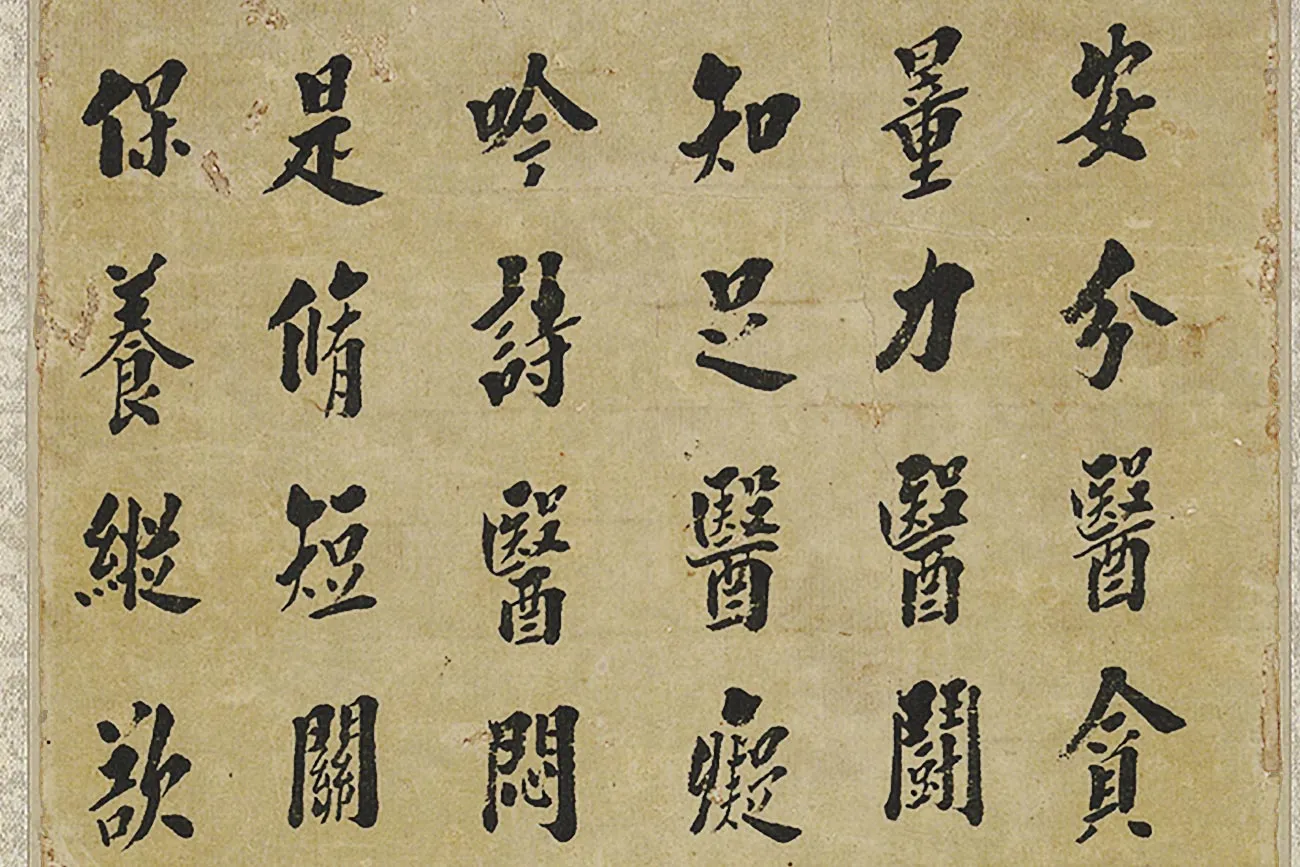 安分醫貪
量力醫鬪
知足醫癡
吟詩醫悶
是脩短關
保養縱欲